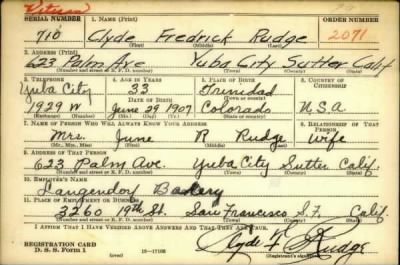 Veteran
SERIAL NUMBER 1. NAME (Print) ORDER NUMBER
710 Clyde Fredrick Rudge 2071
(First) (Middle) (Last)
2. ADDRESS (Print)
623 Palm Ave Yuba City Sutter Calif
(Number and street or R. F. D. number) (Town) (County) (State)
3. TELEPHONE 4. AGE IN YEARS 5. PLACE OF BIRTH 6. COUNTRY OF CITIZENSHIP
Yuba City 33 Trinidad
DATE OF BIRTH (Town or county)
1929 W June 29 1907 Colorado U.S.A
(Exchange) (Number) (Mo.) (Day) (Yr.) (State or country)
7. NAME OF PERSON WHO WILL ALWAYS KNOW YOUR ADDRESS 8. RELATIONSHIP OF THAT PERSON
Mrs. June R Rudge Wife
(Mr., Mrs., Miss) (First) (Middle) (Last)
9. ADDRESS OF THAT PERSON
623 Palm Ave. Yuba City Sutter Calif.
(Number and street or R. F. D. number) (Town) (County) (State)
10. EMPLOYER'S NAME
Langendorf Bakery
11. PLACE OF EMPLOYMENT OR BUSINESS
3260 19th St. San Francisco S.F. Calif
(Number and street or R. F. D. number) (Town) (County) (State)
I AFFIRM THAT I HAVE VERIFIED ABOVE ANSWERS AND THAT THEY ARE TRUE.
REGISTRATION CARD
D. S. S. Form 1 16—17105 Clyde F Rudge
(Registrant's signature)